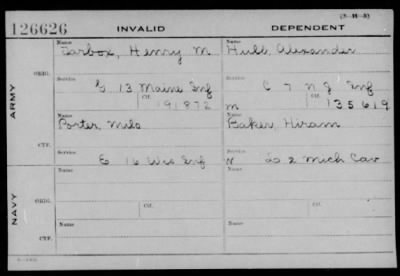 (3-H-3)
126626 INVALID DEPENDENT
Name Name
Tarbox, Henry M. Hull, Alexander
ORIG.
Service Service
G 13 Maine Inf C 7 N J Inf
Ctf. Ctf.
191872 m 135619
ARMY
Name Name
Porter, Milo Baker, Hiram
CTF.
Service Service
E 16 Wis Inf N 2 Mich Cav
Name Name
ORIG. Ctf. Ctf.
NAVY
Name Name
CTF.